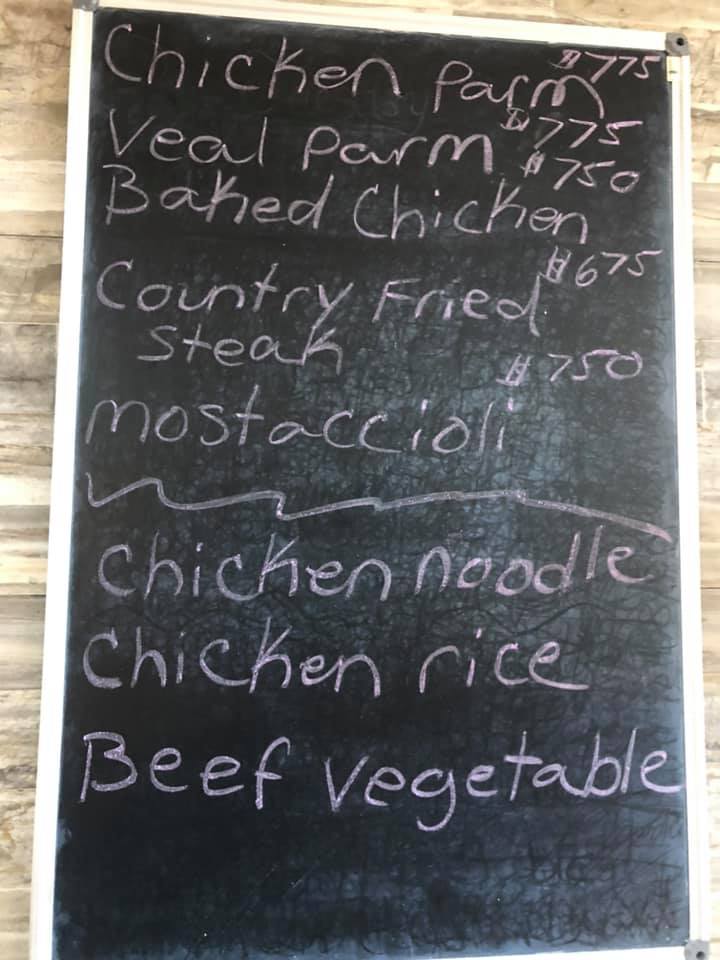 Chicken Parm $775
Veal Parm $775
Baked Chicken $750
Country Fried $675
Steak
mostaccioli $750
Chicken noodle
Chicken rice
Beef vegetable